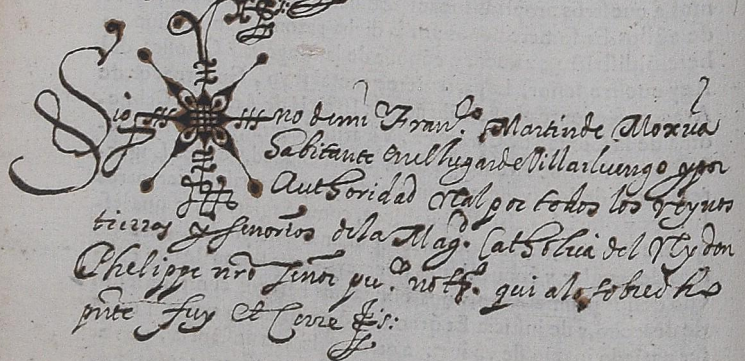 Sig no de mi Fran.co Martin de Moxica
habitante en el lugar de Villarluengo y por
Authoridad Real por todos los Reynos
tierras y senorios de la Mag.d Catholica del Rey don
Phelippe nro señor pu.co not.o qui a lo sobredho
pnte fuy et Cerre